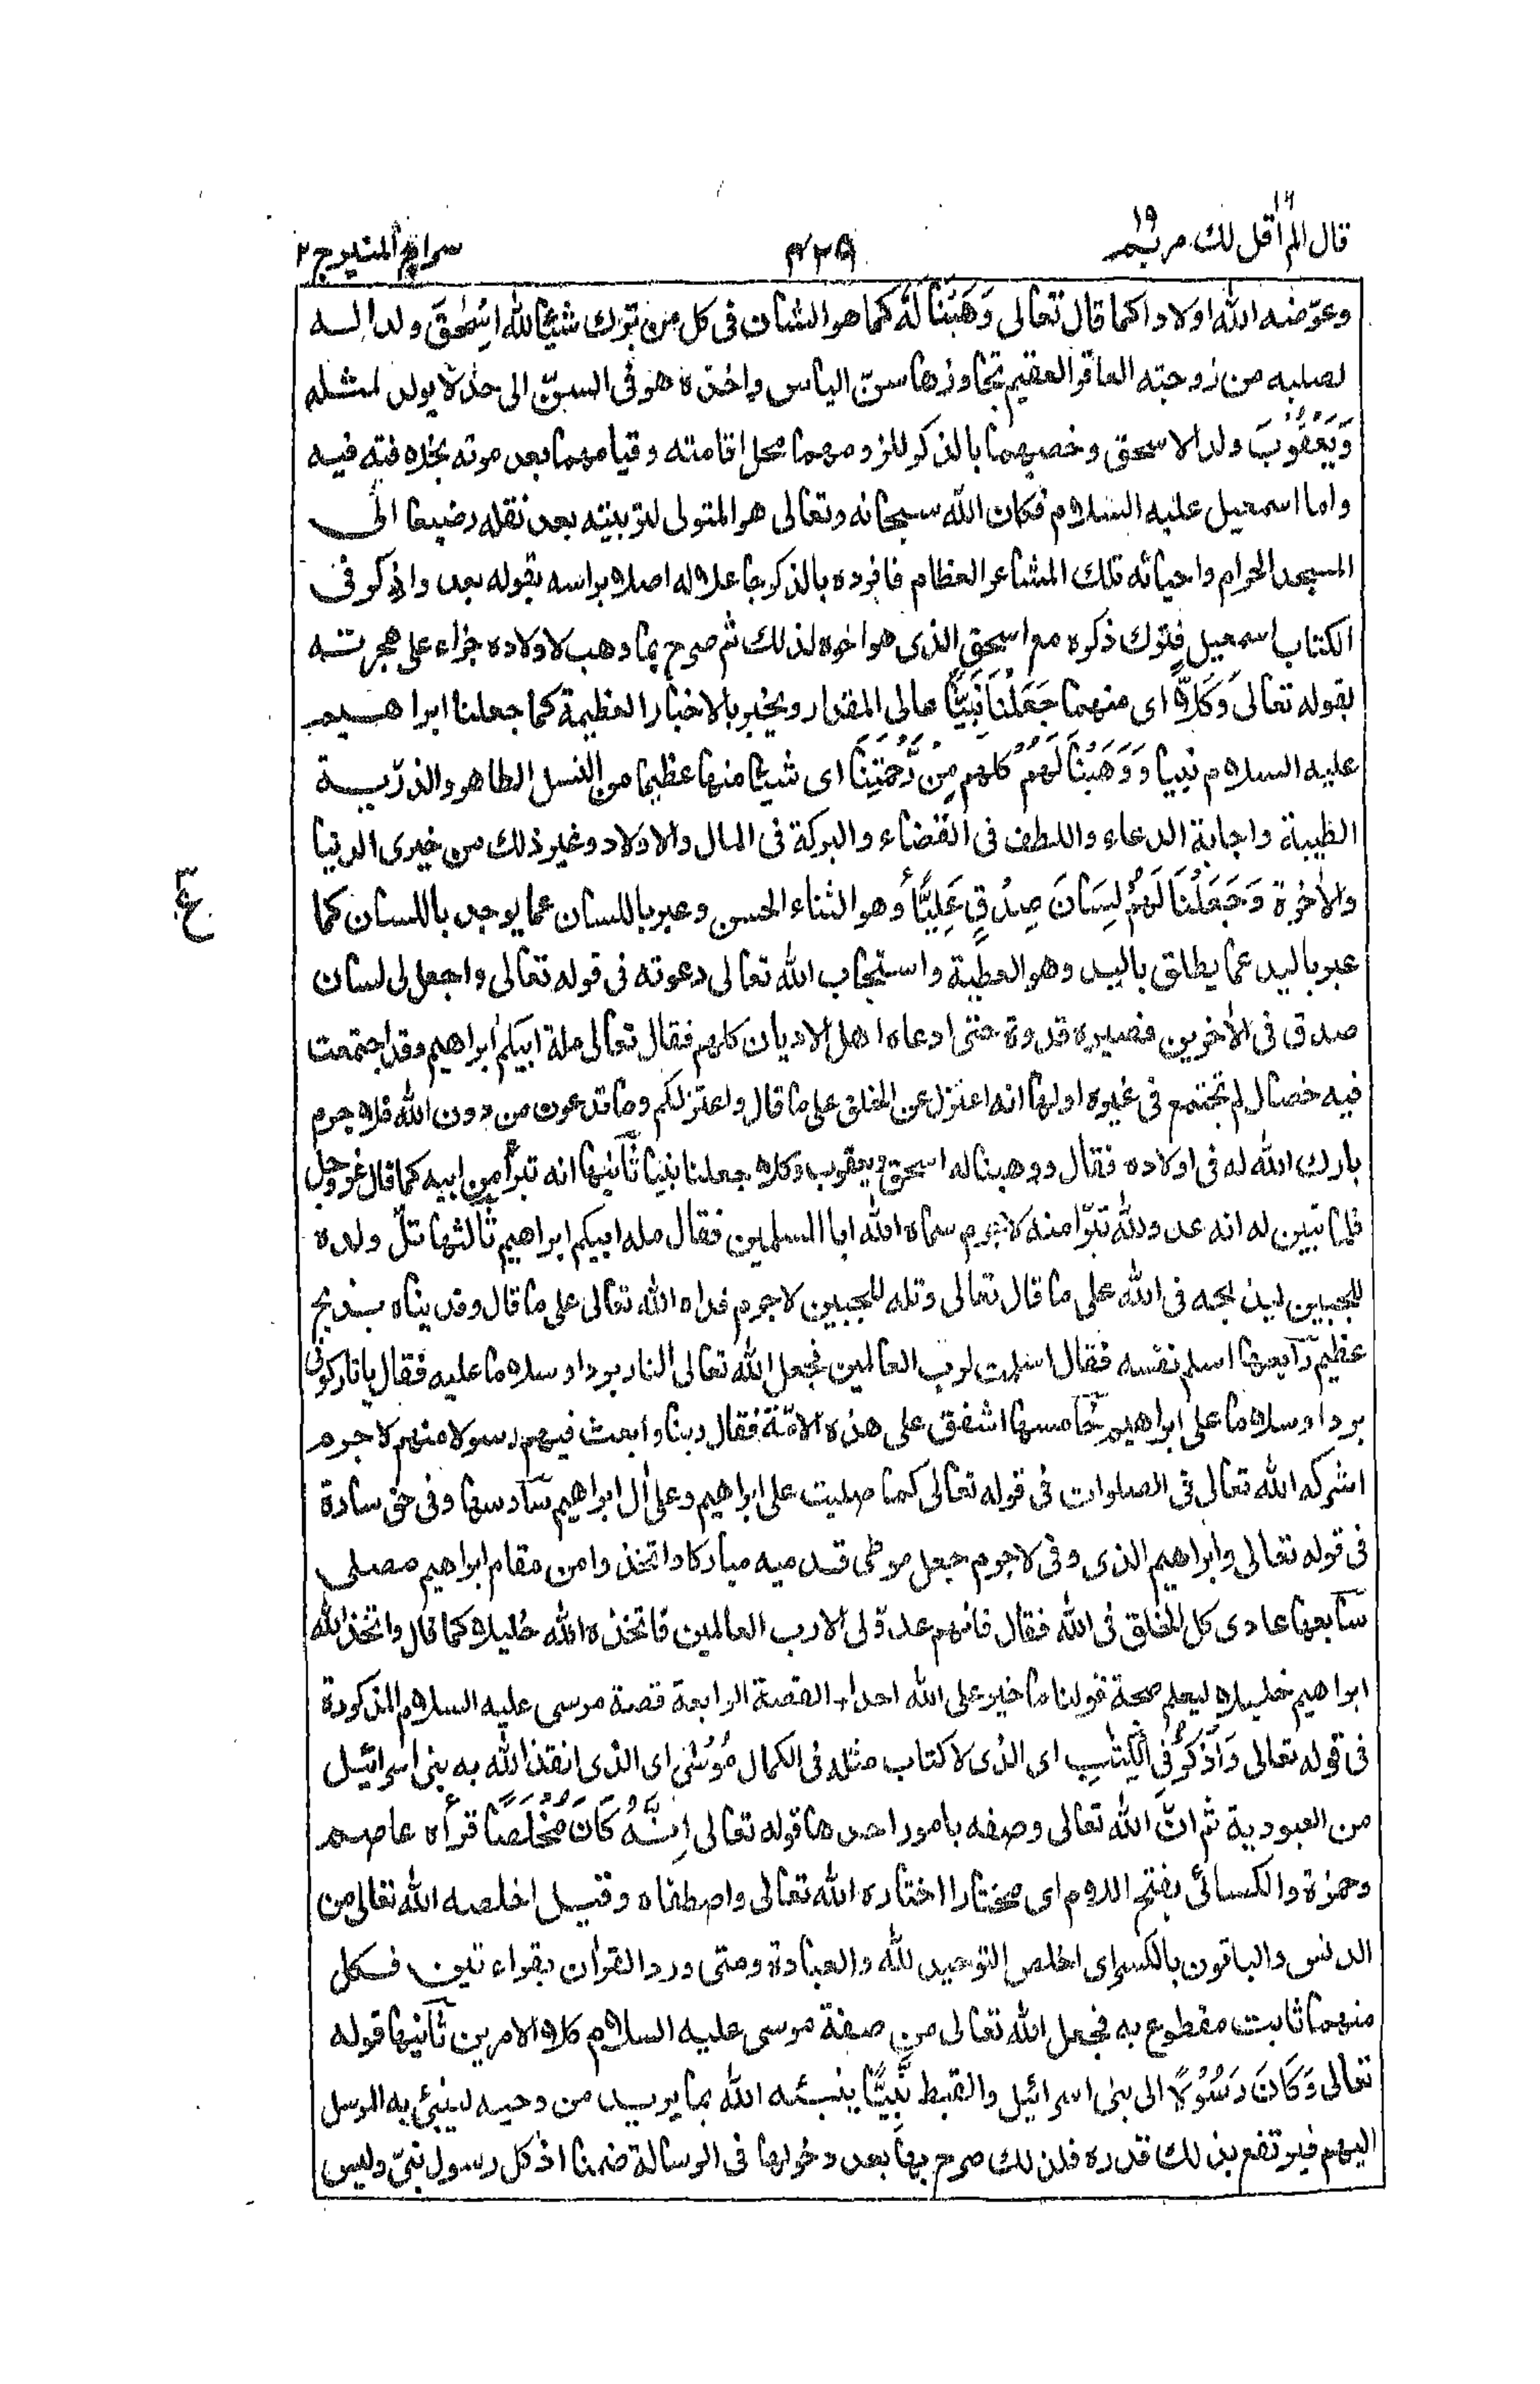 قال الم اقل لك ١٦ مريم ١٩
٤٢٥
سراج المنير ج ٢
وعوّضه الله اولادا كما قال تعالى وَهَبْنَا لَهُ كما هو الشان فى كل من ترك شيئا لله اِسْحٰقَ ولدا لــه
لصلبه من زوجته العاقر العقيم تجاوزها سنّ الياس واخذه هو فى السنّ الى حد لا يولد لمثله
وَيَعْقُوْبَ ولدا لاسحق وخصهما بالذكر للزومهما محل اقامته وقيامهما بعد موته بخلافته فيه
واما اسمعيل عليه السلام فكان الله سبحانه وتعالى هو المتولى لتربيته بعد نقله رضيعا الى
المسجد الحرام واحيائه تلك المشاعر العظام فافرده بالذكر جاعلا له اصلا براسه بقوله بعد واذكر فى
الكتاب اسمعيل فترك ذكره مع اسحق الذى هو اخوه لذلك ثم صرح بما وهب لاولاده جزاء على هجرته
بقوله تعالى وَكُلًّا اى منهما جَعَلْنَا نَبِيًّا عالى المقدار ويخبر بالاخبار العظيمة كما جعلنا ابراهيم
عليه السلام نبيا وَوَهَبْنَا لَهُمْ كلهم مِنْ رَّحْمَتِنَا اى شيئا منها عظيما من النسل الطاهر والذرّيــة
الطيبة واجابة الدعاء واللطف فى القضاء والبركة فى المال والاولاد وغير ذلك من خيرى الدنيا
والاٰخرة وَجَعَلْنَا لَهُمْ لِسَانَ صِدْقٍ عَلِيًّا وهو الثناء الحسن وعبر باللسان عما يوجد باللسان كما
عبر باليد عما يطلق باليد وهو العطية واستجاب الله تعالى دعوته فى قوله تعالى واجعل لى لسان
صدق فى الاٰخرين فصيره قدوة حتى ادعاه اهل الاديان كلهم فقال تعالى ملة ابيكم ابراهيم وقد اجتمعت
فيه خصال لم تجتمع فى غيره اولها انه اعتزل عن الخلق على ما قال واعتزلكم وما تدعون من دون الله فلا جرم
بارك الله له فى اولاده فقال ووهبنا له اسحق ويعقوب وكلا جعلنا نبيا ثانيها انه تبرأ من ابيه كما قال عز وجل
فلما تبين له انه عدو لله تبرّا منه لا جرم سماه الله ابا المسلمين فقال ملة ابيكم ابراهيم ثالثها تلّ ولده
للجبين ليذبحه فى الله على ما قال تعالى وتله للجبين لا جرم فداه الله تعالى على ما قال وفديناه بذبح
عظيم رابعها اسلم نفسه فقال اسلمت لرب العالمين فجعل الله تعالى النار بردا وسلاما عليه فقال يا نار كونى
بردا وسلاما على ابراهيم خامسها اشفق على هذه الامّة فقال ربنا وابعث فيهم رسولا منهم لا جرم
اشركه الله تعالى فى الصلوات فى قوله تعالى كما صليت على ابراهيم وعلى اٰل ابراهيم سادسها وفى حق سارة
فى قوله تعالى وابراهيم الذى وفى لا جرم جعل موطى قدميه مباركا واتخذوا من مقام ابراهيم مصلى
سابعها عادى كل الخلق فى الله فقال فانهم عدوّ لى الا رب العالمين فاتخذه الله خليلا كما قال واتخذ الله
ابراهيم خليلا ليعلم صحة قولنا ما خير على الله احد اه القصة الرابعة قصة موسى عليه السلام المذكورة
فى قوله تعالى وَاذْكُرْ فِى الْكِتٰبِ اى الذى لا كتاب مثله فى الكمال مُوْسٰى اى الذى انقذ الله به بنى اسرائيل
من العبودية ثم انّ الله تعالى وصفه بامور احدها قوله تعالى اِنَّهُ كَانَ مُخْلَصًا قرأه عاصم
وحمزة والكسائى بفتح اللام اى مختارا اختاره الله تعالى واصطفاه وقيل اخلصه الله تعالى من
الدنس والباقون بالكسر اى اخلص التوحيد لله والعبادة ومتى ورد القراٰن بقراءتين فكل
منهما ثابت مقطوع به فجعل الله تعالى من صفة موسى عليه السلام كلا الامرين ثانيها قوله
تعالى وَكَانَ رَسُوْلًا الى بنى اسرائيل والقبط نَّبِيًّا ينبئه الله بما يريد من وحيه لينبئ به المرسل
اليهم فيرتفع بذلك قدره فلذلك صرح بها بعد دخولها فى الرسالة ضمنا اذ كل رسول نبىّ وليس